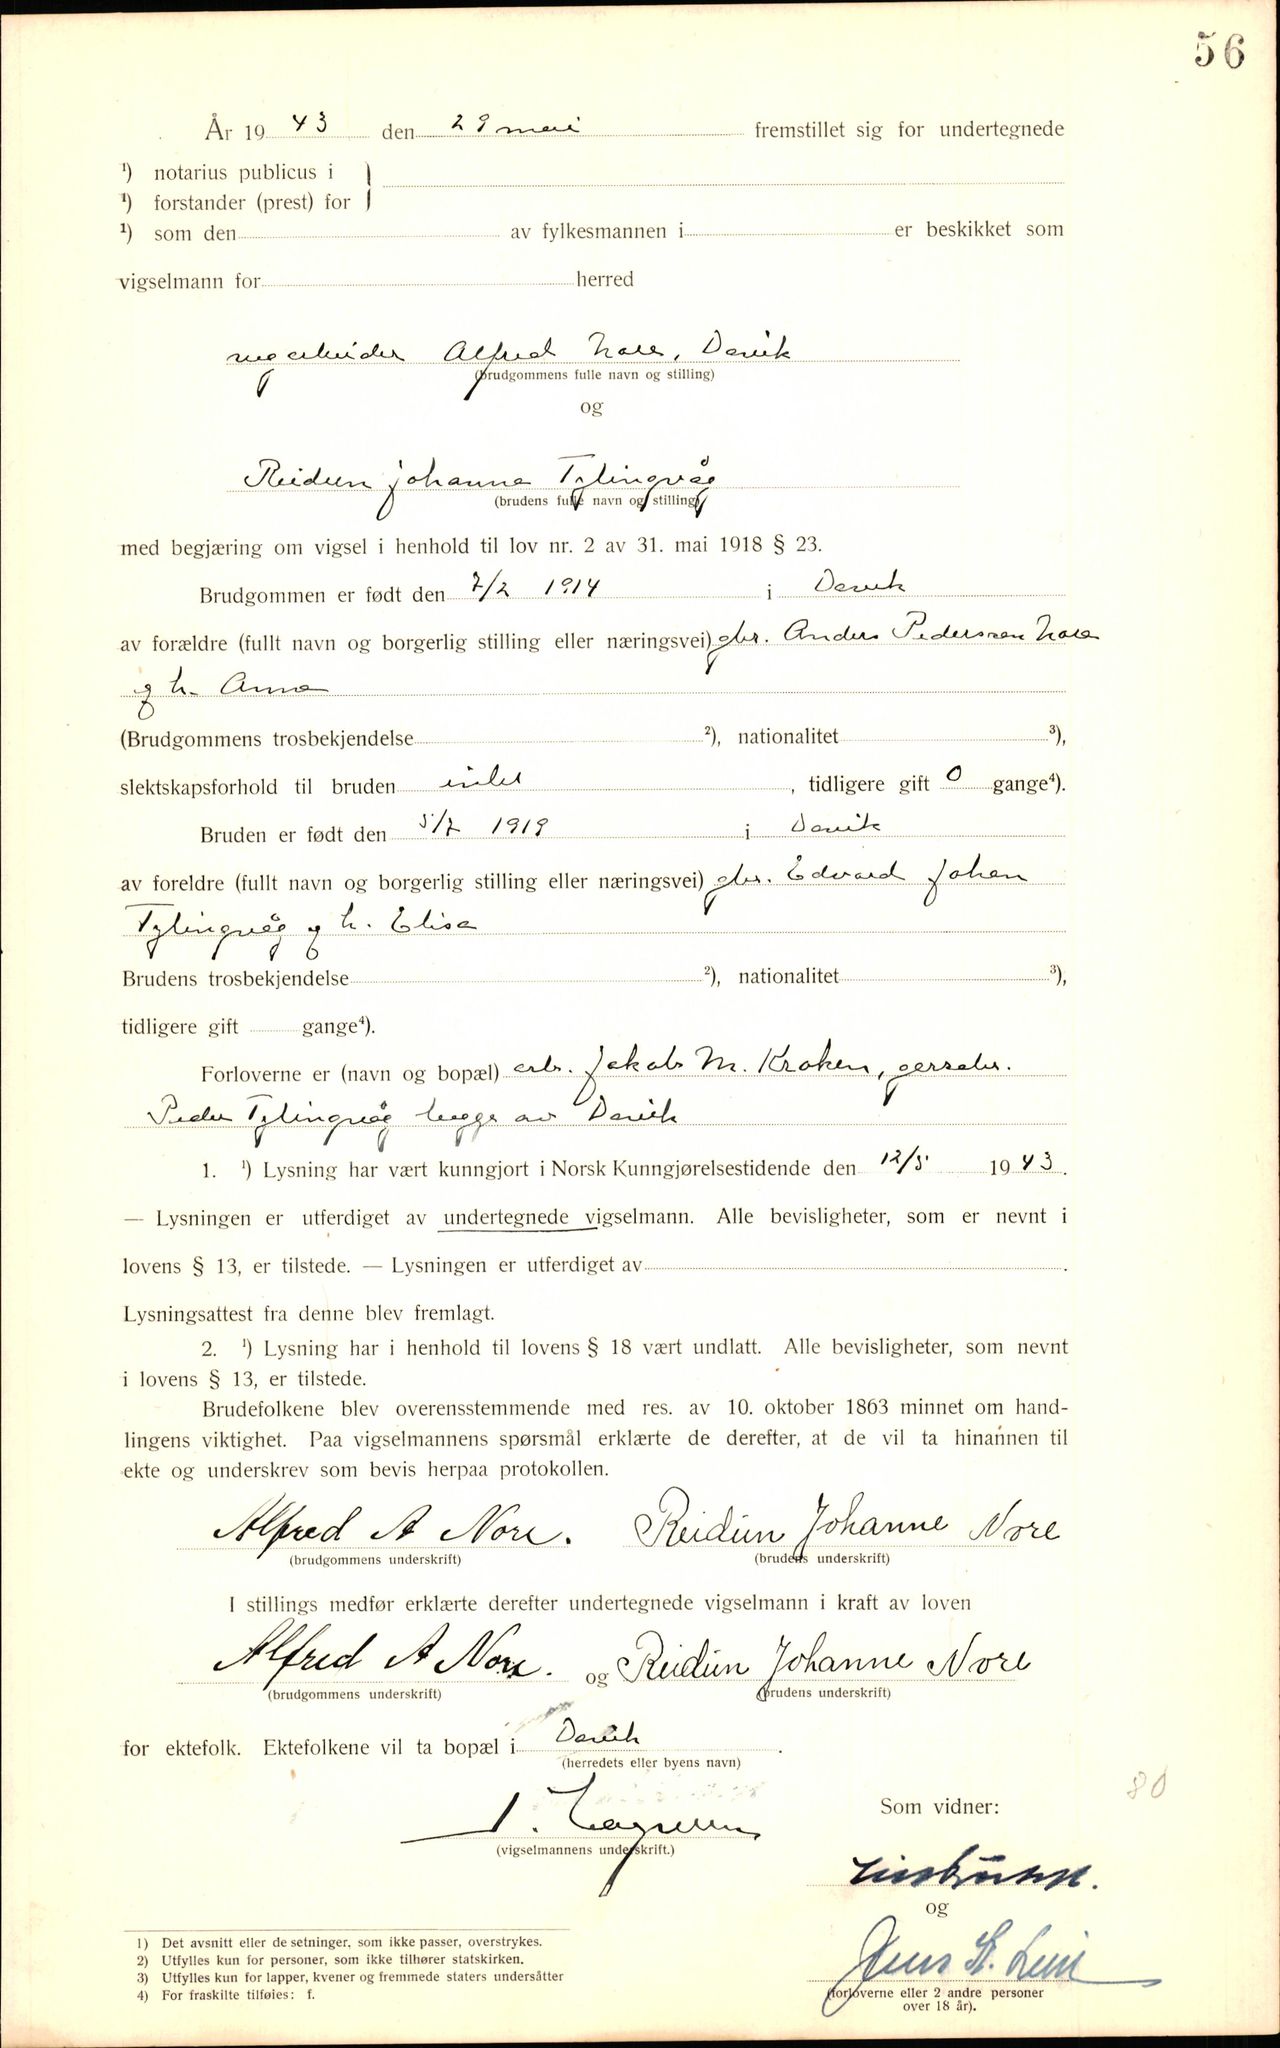 56
År 1943 den 29 mai fremstillet sig for undertegnede
¹) notarius publicus i
¹) forstander (prest) for
¹) som den av fylkesmannen i er beskikket som
vigselmann for herred
Alfred Nore, Davik
(brudgommens fulle navn og stilling)
og
Reidun Johanne Tylingvåg
(brudens fulle navn og stilling)
med begjæring om vigsel i henhold til lov nr. 2 av 31. mai 1918 § 23.
Brudgommen er født den 7/2 1914 i Davik
av forældre (fullt navn og borgerlig stilling eller næringsvei) gbr. Anders Pedersen Nore
og h. Anna
(Brudgommens trosbekjendelse ²), nationalitet ³),
slektskapsforhold til bruden intet, tidligere gift 0 gange⁴).
Bruden er født den 5/7 1919 i Davik
av foreldre (fullt navn og borgerlig stilling eller næringsvei) gbr. Edvard Johan
Tylingvåg og h. Elise
Brudens trosbekjendelse ²), nationalitet ³),
tidligere gift gange⁴).
Forloverne er (navn og bopæl) arb. Jakob M. Kroken,
Peder Tylingvåg begge av Davik
1. ¹) Lysning har vært kunngjort i Norsk Kunngjørelsestidende den 12/5 1943.
— Lysningen er utferdiget av undertegnede vigselmann. Alle bevisligheter, som er nevnt i
lovens § 13, er tilstede. — Lysningen er utferdiget av .
Lysningsattest fra denne blev fremlagt.
2. ¹) Lysning har i henhold til lovens § 18 vært undlatt. Alle bevisligheter, som nevnt
i lovens § 13, er tilstede.
Brudefolkene blev overensstemmende med res. av 10. oktober 1863 minnet om hand-
lingens viktighet. Paa vigselmannens spørsmål erklærte de derefter, at de vil ta hinannen til
ekte og underskrev som bevis herpaa protokollen.
Alfred A Nore. Reidun Johanne Nore
(brudgommens underskrift) (brudens underskrift)
I stillings medfør erklærte derefter undertegnede vigselmann i kraft av loven
Alfred A Nore. og Reidun Johanne Nore
(brudgommens underskrift) (brudens underskrift)
for ektefolk. Ektefolkene vil ta bopæl i Davik .
(herredets eller byens navn)
80
Som vidner:
(vigselmannens underskrift.)
og
Jens St. Leir
(forloverne eller 2 andre personer
over 18 år).
1) Det avsnitt eller de setninger, som ikke passer, overstrykes.
2) Utfylles kun for personer, som ikke tilhører statskirken.
3) Utfylles kun for lapper, kvener og fremmede staters undersåtter
4) For fraskilte tilføies: f.